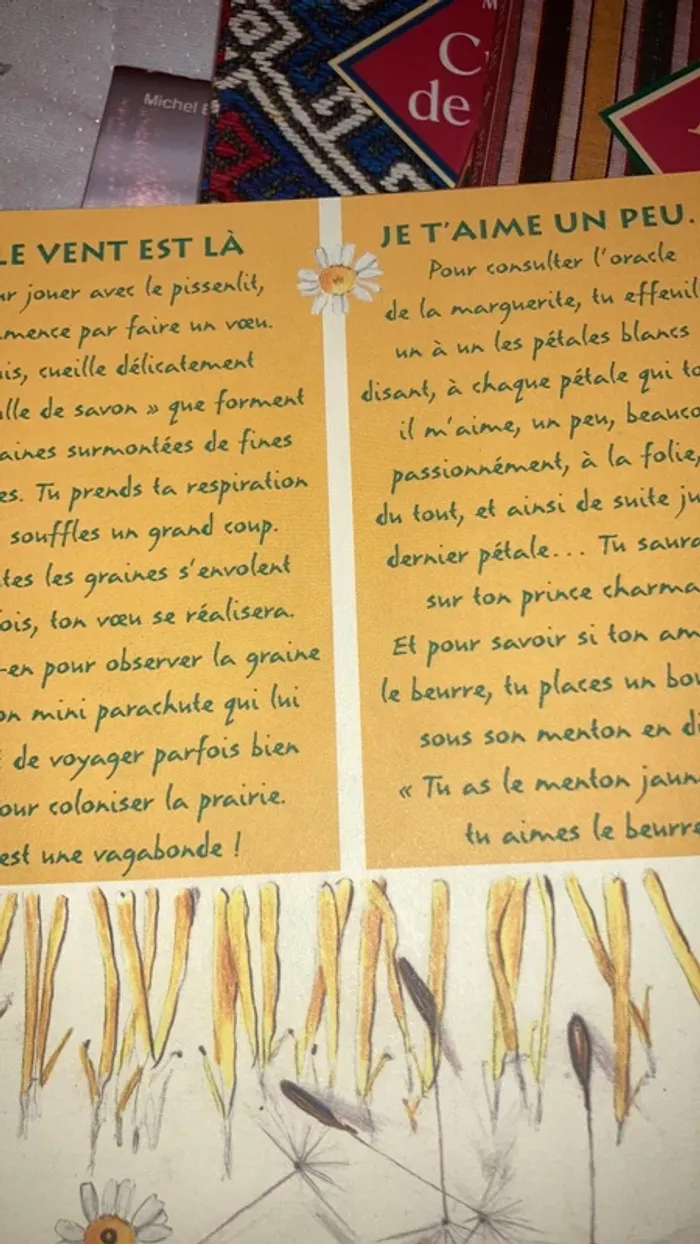 Michel
C
de
LE VENT EST LÀ
jouer avec le pissenlit,
par faire un vœu.
cueille délicatement
de savon » que forment
surmontées de fines
Tu prends ta respiration
souffles un grand coup.
les graines s'envolent
ton vœu se réalisera.
-en pour observer la graine
mini parachute qui lui
de voyager parfois bien
coloniser la prairie.
est une vagabonde !
JE T'AIME UN PEU.
Pour consulter l'oracle
de la marguerite, tu
un à un les pétales blancs
disant, à chaque pétale qui
il m'aime, un peu,
passionnément, à la folie,
du tout, et ainsi de suite
dernier pétale... Tu
sur ton prince
Et pour savoir si ton
le beurre, tu places un
sous son menton en
« Tu as le menton
tu aimes le beurre
9